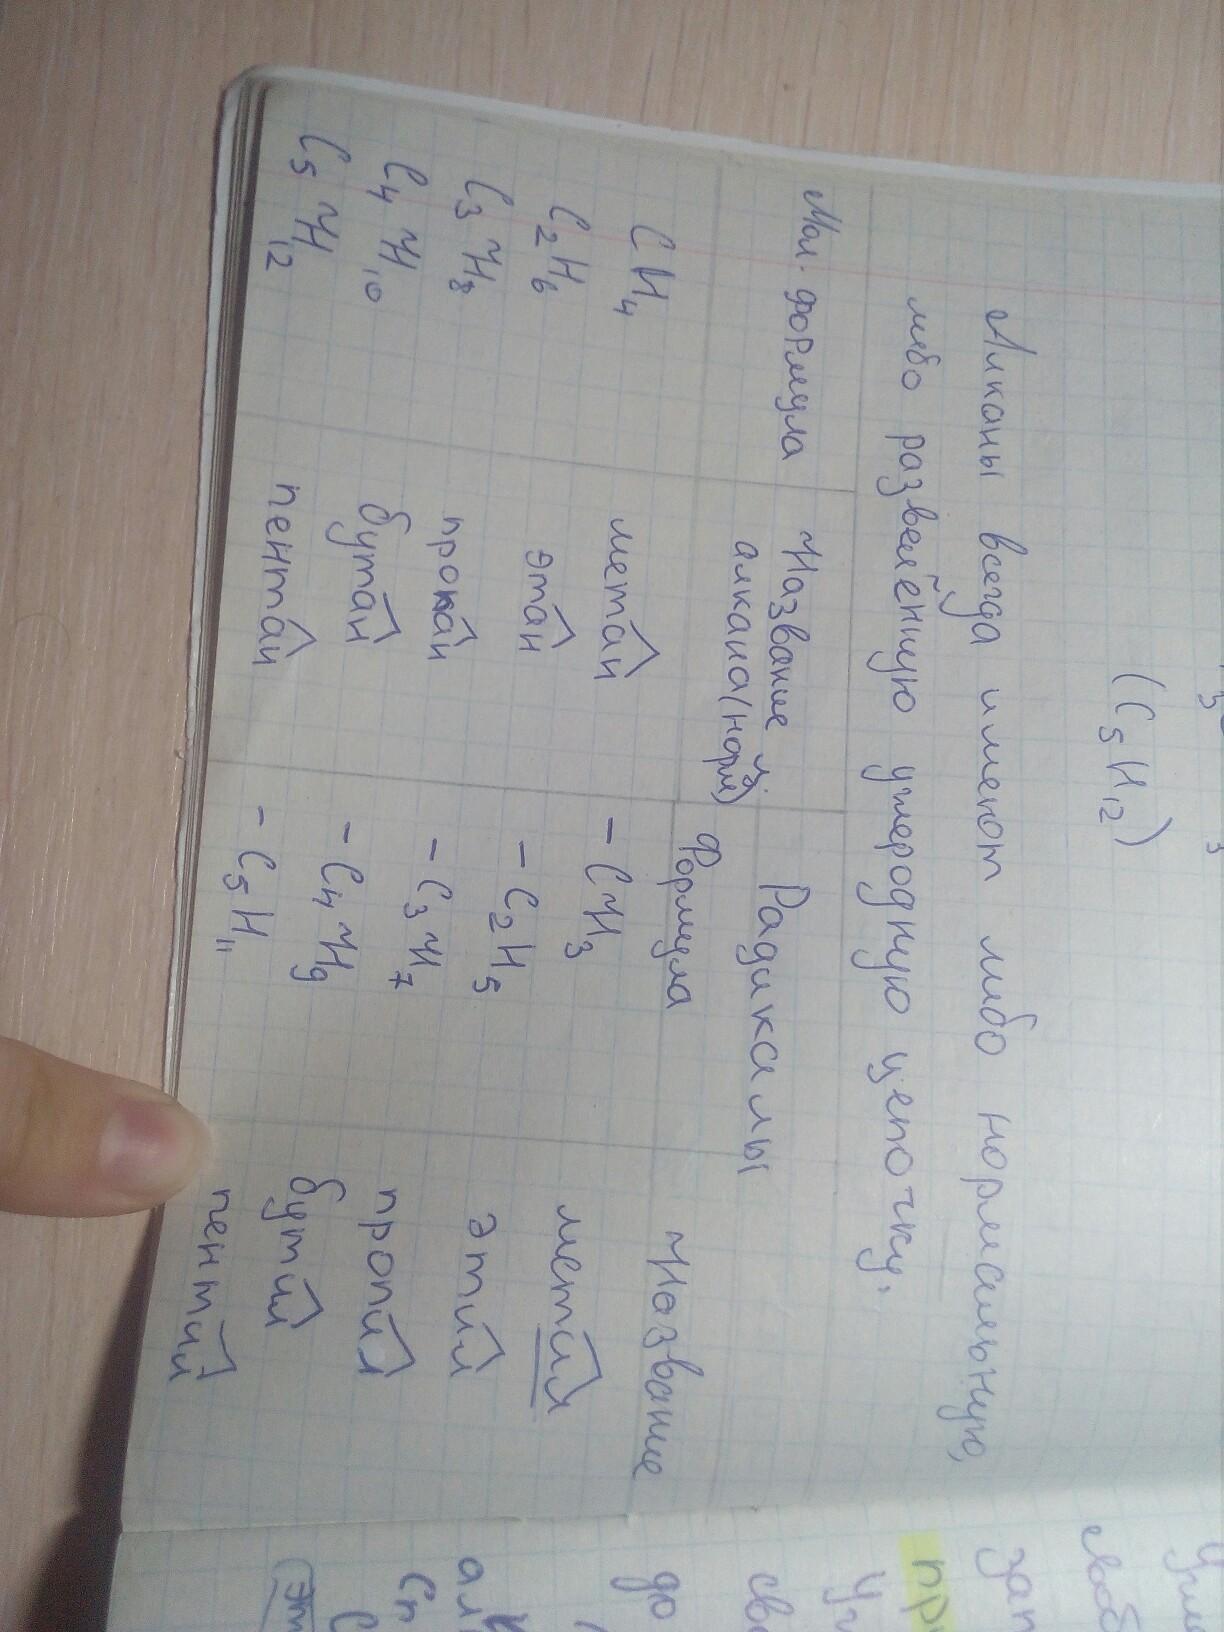 (C5H12)
Алканы всегда имеют либо нормальную,
либо разветвлённую углеродную цепочку.
Мол. формула Название ц. Радикалы
алкана (норм) Формула Название
CH4 метан -CH3 метил
C2H6 этан -C2H5 этил
C3H8 пропан -C3H7 пропил
C4H10 бутан -C4H9 бутил
C5H12 пентан -C5H11 пентил